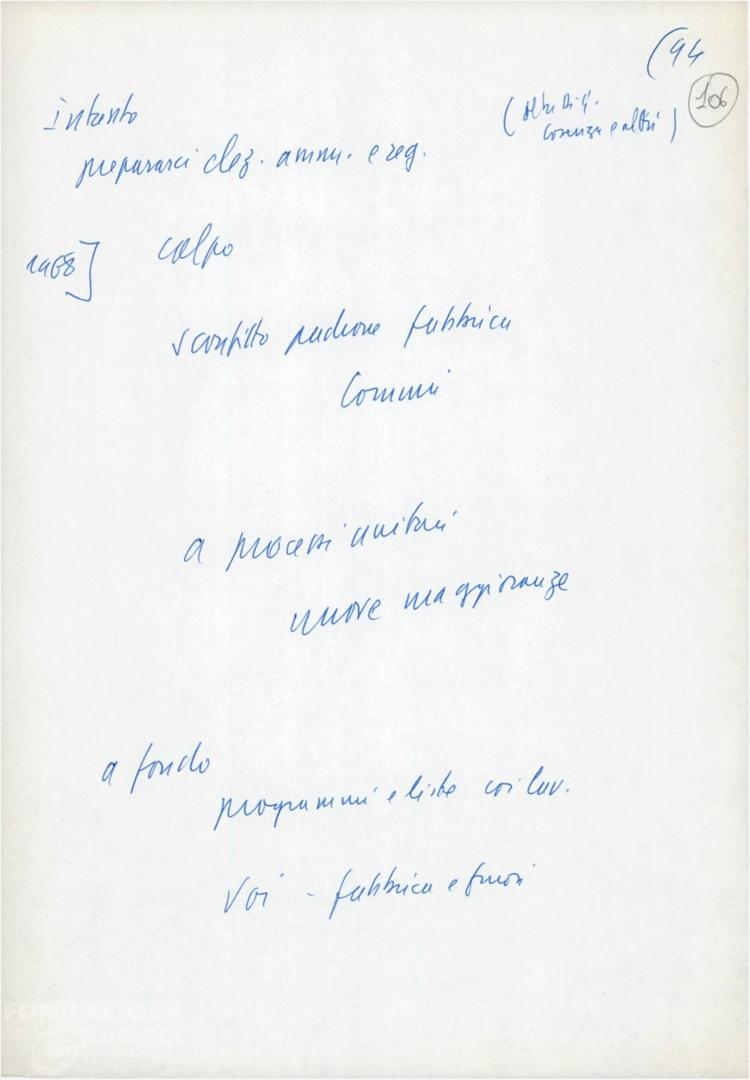 (94
106
Intanto
( oltre
Cosenza e altri )
prepararci elez. amm. e reg.
1968] colpo
sconfitto padrone fabbrica
Comuni
a processi unitari
nuove maggioranze
a fondo
programmi e liste coi lav.
Voi - fabbrica e fuori
FONDAZIONE
GRAMSCI